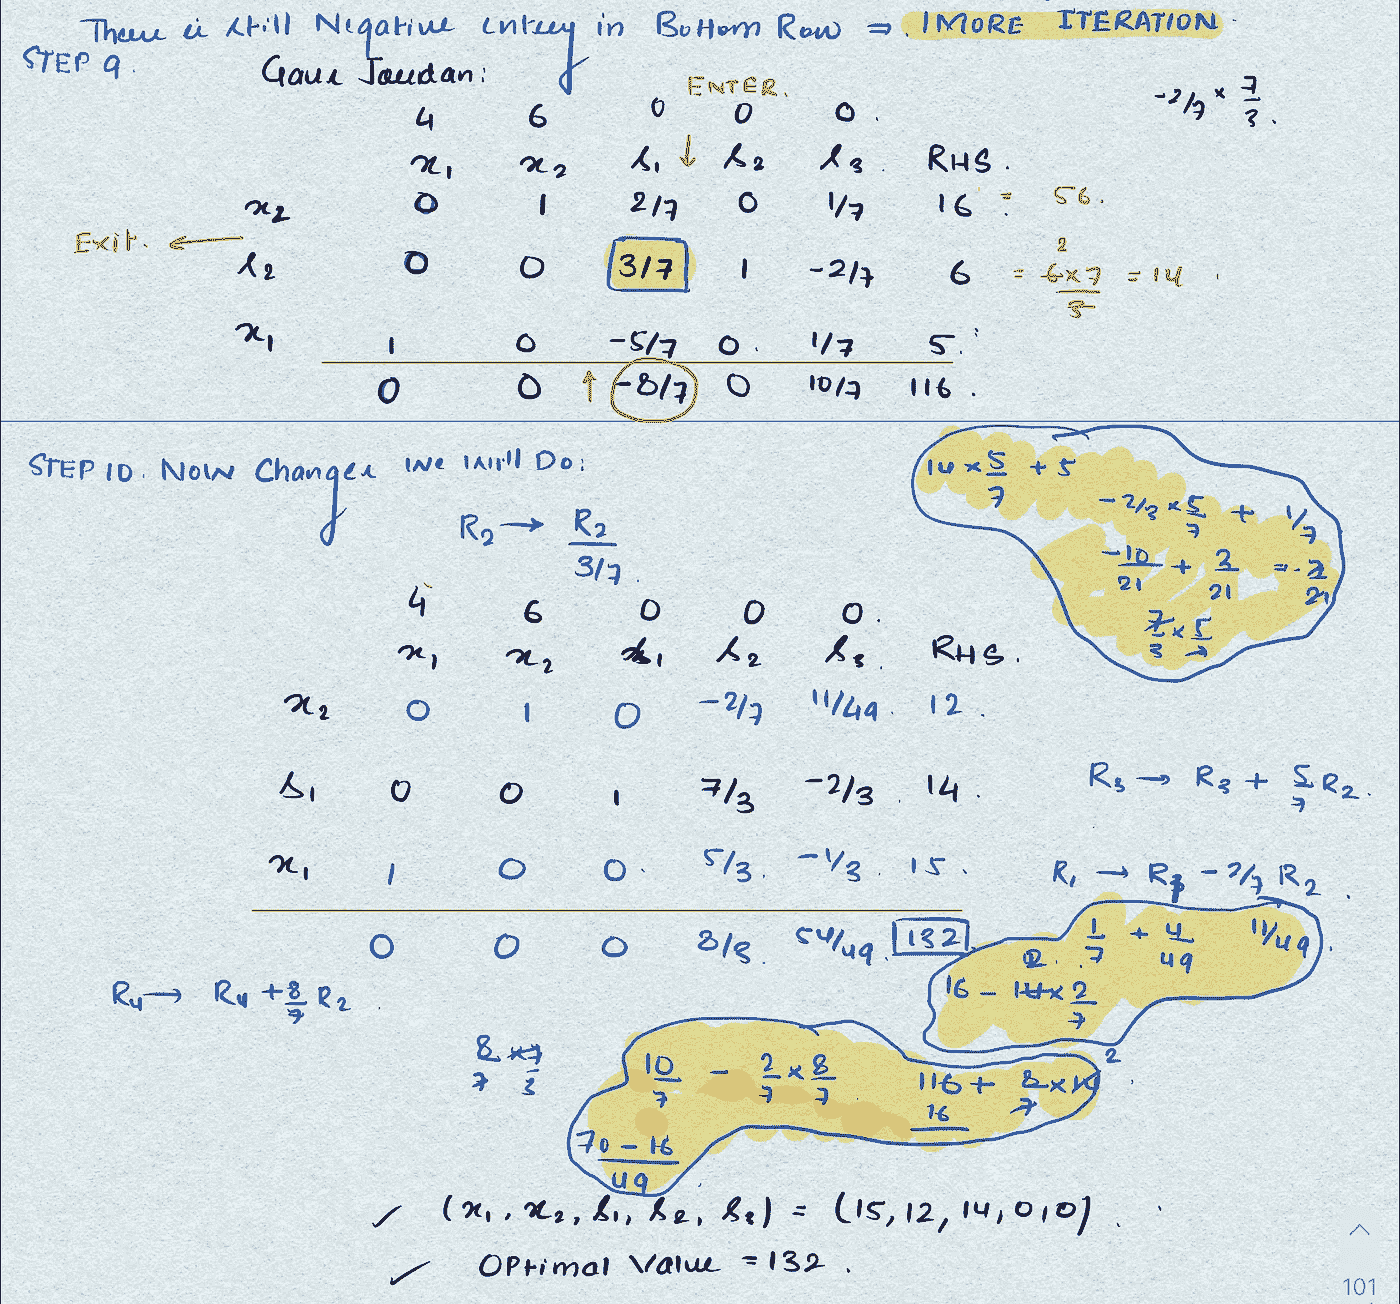 There is still Negative entry in Bottom Row ⇒ 1 MORE ITERATION
STEP 9.
Gauss Jordan:
ENTER.
-2/7 × 7/3.
4 6 0 0 0.
x₁ x₂ s₁ ↓ s₂ s₃ RHS.
x₂ 0 1 2/7 0 1/7 16 = 56.
Exit. ← s₂ 0 0 3/7 1 -2/7 6 = 6×7/3 = 14
2
x₁ 1 0 -5/7 0. 1/7 5.
0 0 ↑ -8/7 0 10/7 116.
STEP 10. Now Changes we will Do:
R₂ → R₂/3/7.
14 × 5/7 + 5
-2/3 × 5/7 + 1/7
-10/21 + 3/21 = -7/21
7/3 × 5/7
4 6 0 0 0.
x₁ x₂ s₁ s₂ s₃ RHS.
x₂ 0 1 0 -2/7 11/49. 12.
s₁ 0 0 1 7/3 -2/3. 14.
R₃ → R₃ + 5/7 R₂.
x₁ 1 0 0. 5/3. -1/3. 15.
R₁ → R₁ - 2/7 R₂.
0 0 0 8/3. 54/49. 132
1/7 + 4/49 11/49.
2.
16 - 14 × 2/7
R₄ → R₄ + 8/7 R₂
8/7 × 7/3
10/7 - 2/7 × 8/7
116 + 8/7 × 14 2
16
70 - 16/49
✓ (x₁, x₂, s₁, s₂, s₃) = (15, 12, 14, 0, 0).
✓ Optimal Value = 132.
101